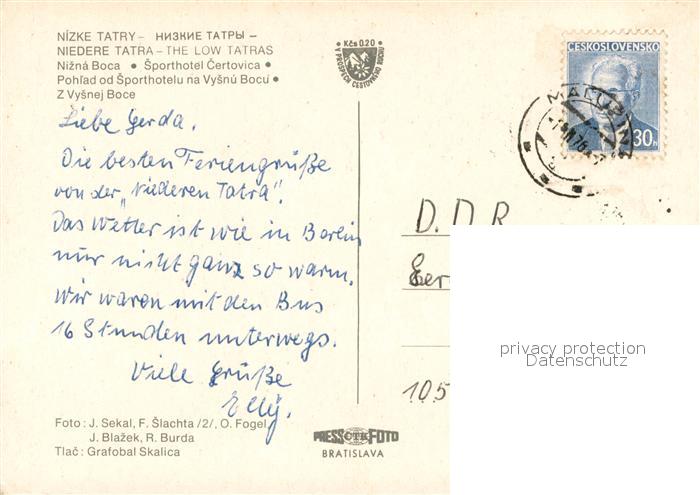 NÍZKE TATRY – НИЗКИЕ ТАТРЫ –
NIEDERE TATRA – THE LOW TATRAS
Nižná Boca • Športhotel Čertovica •
Pohľad od Športhotelu na Vyšnú Bocu •
Z Vyšnej Boce
Kčs 0,20
V PROSPECH CESTOVNÉHO RUCHU
ČESKOSLOVENSKO
30 h
Liebe Gerda.
Die besten Feriengrüße
von der „Niederen Tatra“.
Das Wetter ist wie in Berlin
nur nicht ganz so warm.
Wir waren mit den Bus
16 Stunden unterwegs.
Viele Grüße
Elly.
D.D.R.
105
privacy protection
Datenschutz
Foto: J. Sekal, F. Šlachta /2/, O. Fogel,
J. Blažek, R. Burda
Tlač: Grafobal Skalica
PRESS ČTK FOTO
BRATISLAVA